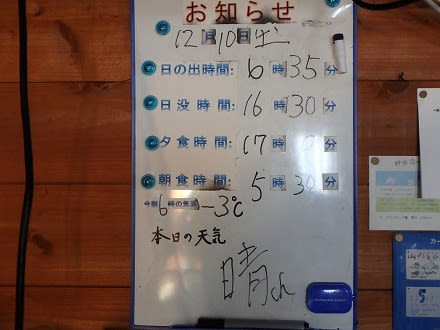 お知らせ
12月10日(土)
日の出時間: 6時35分
日没時間: 16時30分
夕食時間: 17時0分
朝食時間: 5時30分
今朝6時の気温 -3℃
本日の天気
晴れ